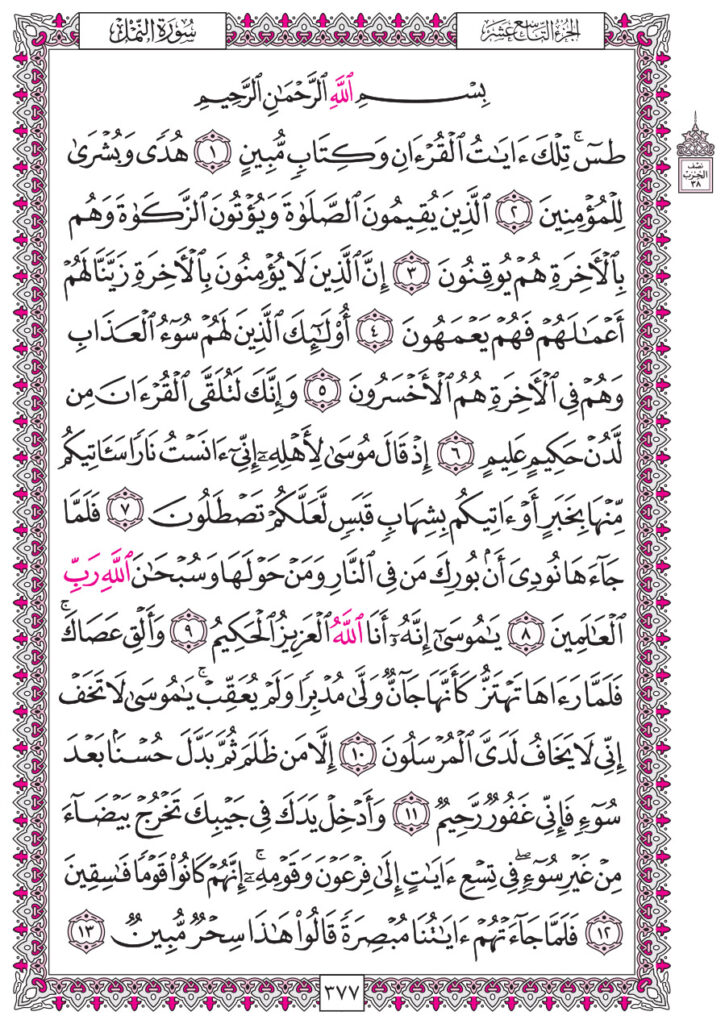 الجزء التاسع عشر
سورة النمل
نصف
الحزب
٣٨
بِسْمِ اللَّهِ الرَّحْمَٰنِ الرَّحِيمِ
طسٓۚ تِلْكَ ءَايَٰتُ الْقُرْءَانِ وَكِتَابٖ مُّبِينٍ ١ هُدٗى وَبُشْرَىٰ
لِلْمُؤْمِنِينَ ٢ الَّذِينَ يُقِيمُونَ الصَّلَوٰةَ وَيُؤْتُونَ الزَّكَوٰةَ وَهُم
بِالْأٓخِرَةِ هُمْ يُوقِنُونَ ٣ إِنَّ الَّذِينَ لَا يُؤْمِنُونَ بِالْأٓخِرَةِ زَيَّنَّا لَهُمْ
أَعْمَٰلَهُمْ فَهُمْ يَعْمَهُونَ ٤ أُوْلَٰٓئِكَ الَّذِينَ لَهُمْ سُوٓءُ الْعَذَابِ
وَهُمْ فِي الْأٓخِرَةِ هُمُ الْأَخْسَرُونَ ٥ وَإِنَّكَ لَتُلَقَّى الْقُرْءَانَ مِن
لَّدُنْ حَكِيمٍ عَلِيمٍ ٦ إِذْ قَالَ مُوسَىٰ لِأَهْلِهِۦٓ إِنِّيٓ ءَانَسْتُ نَارٗا سَـَٔاتِيكُم
مِّنْهَا بِخَبَرٍ أَوْ ءَاتِيكُم بِشِهَابٖ قَبَسٖ لَّعَلَّكُمْ تَصْطَلُونَ ٧ فَلَمَّا
جَآءَهَا نُودِيَ أَنۢ بُورِكَ مَن فِي النَّارِ وَمَنْ حَوْلَهَا وَسُبْحَٰنَ اللَّهِ رَبِّ
الْعَٰلَمِينَ ٨ يَٰمُوسَىٰٓ إِنَّهُۥٓ أَنَا اللَّهُ الْعَزِيزُ الْحَكِيمُ ٩ وَأَلْقِ عَصَاكَۚ
فَلَمَّا رَءَاهَا تَهْتَزُّ كَأَنَّهَا جَآنّٞ وَلَّىٰ مُدْبِرٗا وَلَمْ يُعَقِّبْۚ يَٰمُوسَىٰ لَا تَخَفْ
إِنِّي لَا يَخَافُ لَدَيَّ الْمُرْسَلُونَ ١٠ إِلَّا مَن ظَلَمَ ثُمَّ بَدَّلَ حُسْنَۢا بَعْدَ
سُوٓءٖ فَإِنِّي غَفُورٞ رَّحِيمٞ ١١ وَأَدْخِلْ يَدَكَ فِي جَيْبِكَ تَخْرُجْ بَيْضَآءَ
مِنْ غَيْرِ سُوٓءٖۖ فِي تِسْعِ ءَايَٰتٍ إِلَىٰ فِرْعَوْنَ وَقَوْمِهِۦٓۚ إِنَّهُمْ كَانُواْ قَوْمٗا فَٰسِقِينَ
١٢ فَلَمَّا جَآءَتْهُمْ ءَايَٰتُنَا مُبْصِرَةٗ قَالُواْ هَٰذَا سِحْرٞ مُّبِينٞ ١٣
٣٧٧